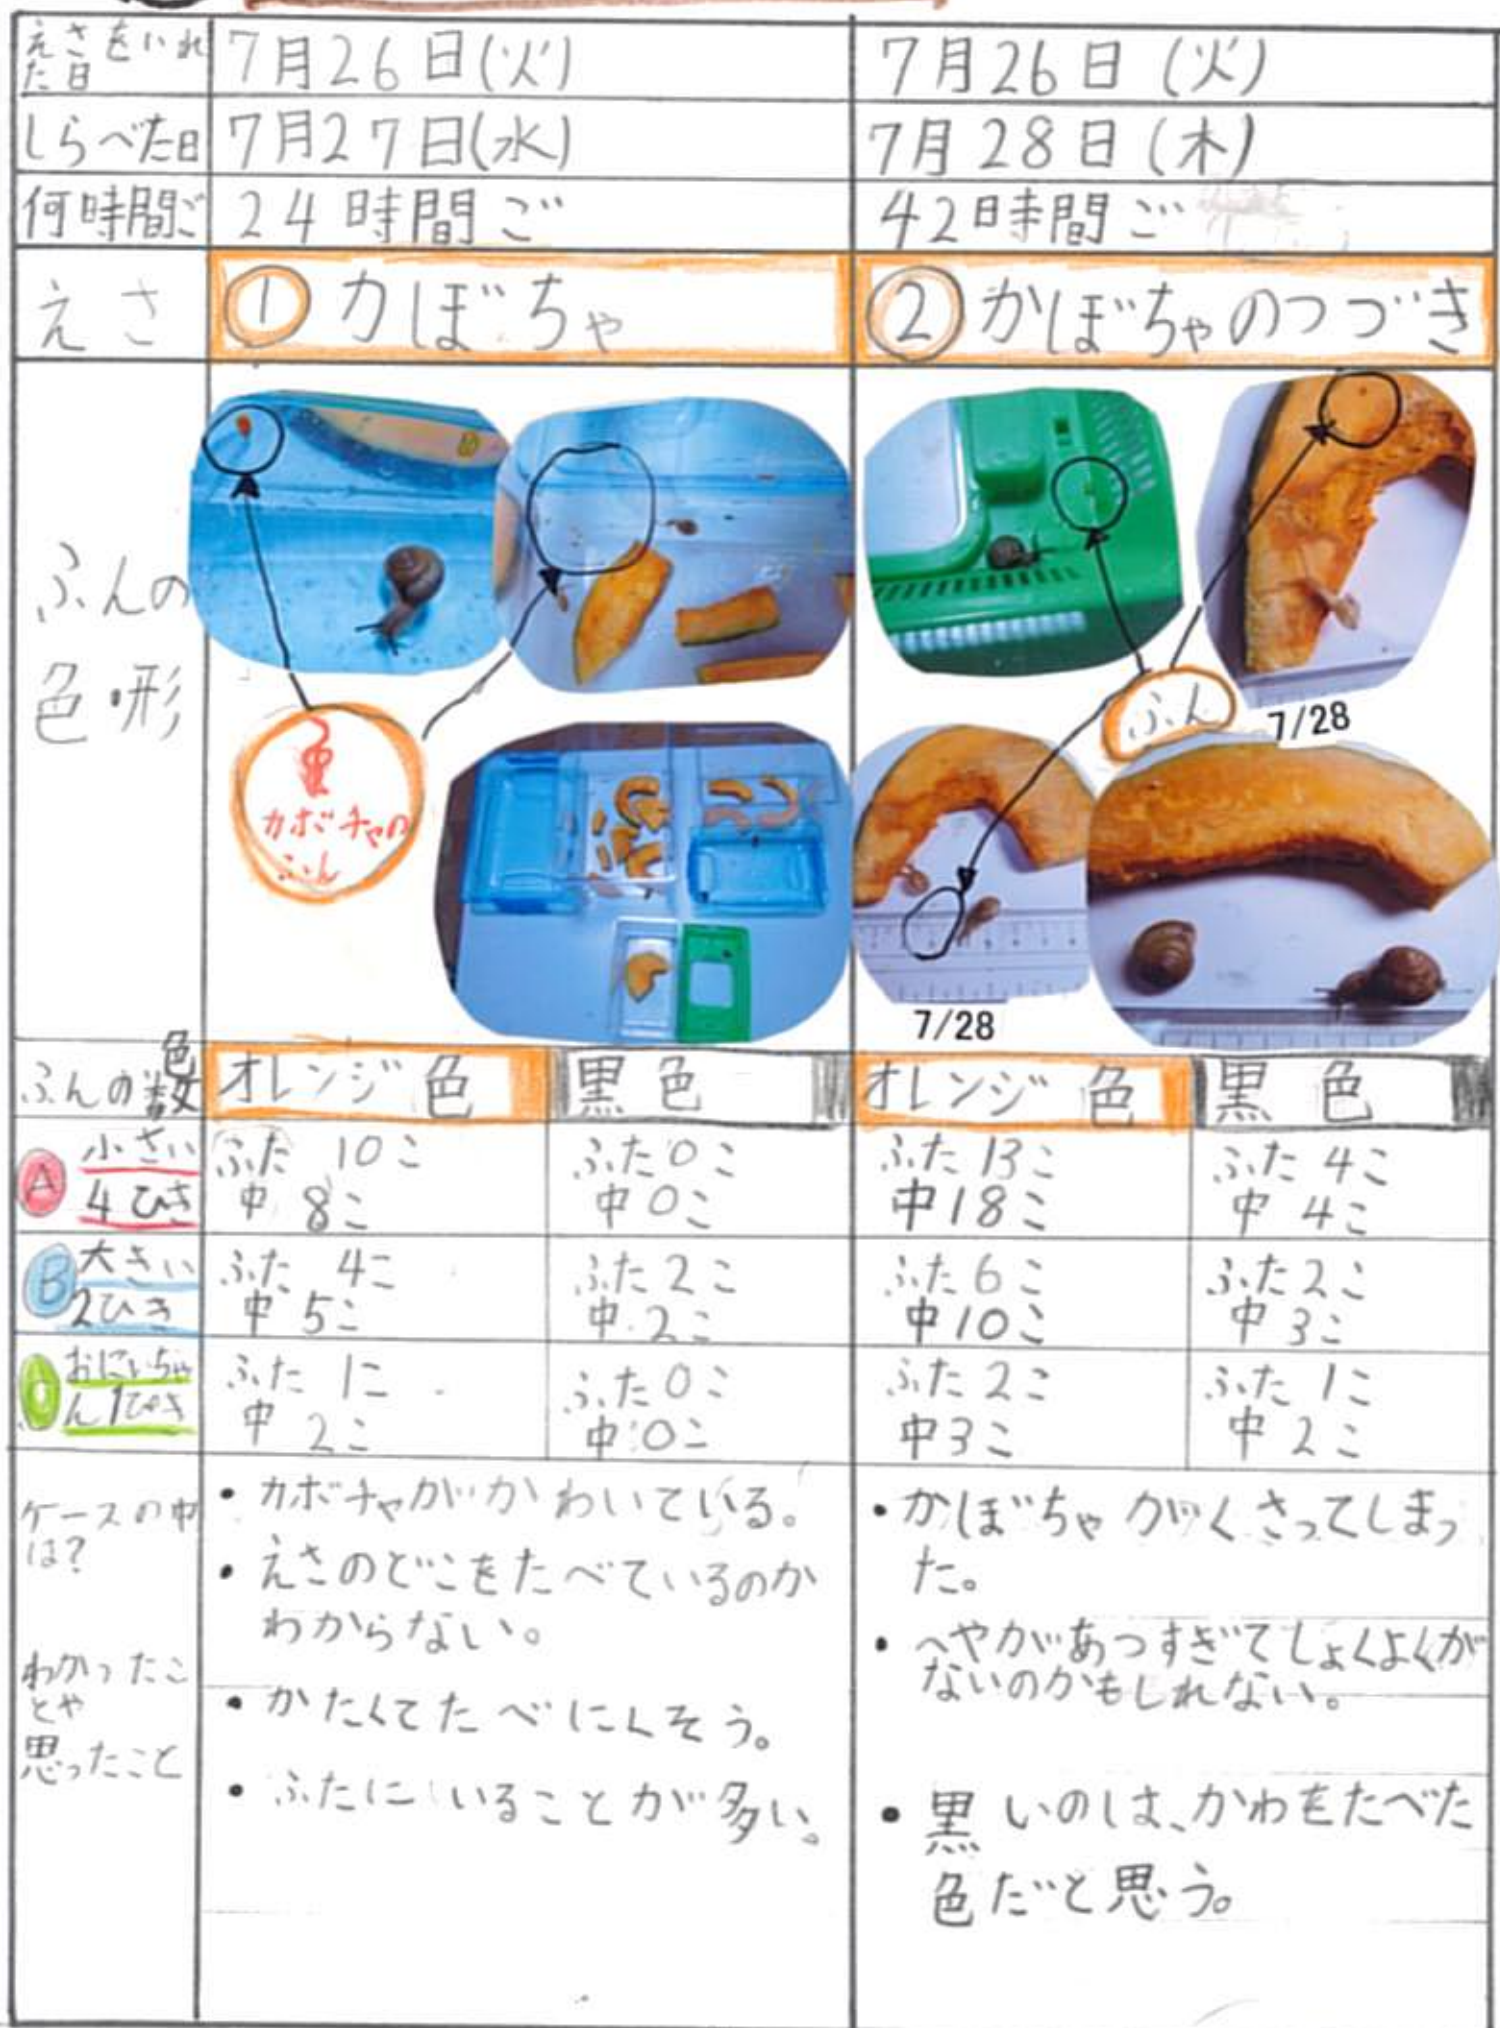 えさをいれ
た日
7月26日(火)
7月26日(火)
しらべた日
7月27日(水)
7月28日(木)
何時間ご
24時間ご
42時間ご
えさ
①カぼちゃ
②かぼちゃのつづき
ふんの
色・形
カボチャの
ふん
ふん
7/28
7/28
ふんの色
数
オレンジ色
黒色
オレンジ色
黒色
A 小さい
4ひき
ふた 10こ
中 8こ
ふた0こ
中0こ
ふた13こ
中18こ
ふた 4こ
中 4こ
B 大きい
2ひき
ふた 4こ
中 5こ
ふた2こ
中 2こ
ふた6こ
中10こ
ふた2こ
中 3こ
おにいちゃ
ん1ぴき
ふた 1こ
中 2こ
ふた0こ
中0こ
ふた2こ
中3こ
ふた 1こ
中 2こ
ケースの中
は?
わかったこ
とや
思ったこと
・カボチャがかわいている。
・えさのどこをたべているのか
わからない。
・かたくてたべにくそう。
・ふたにいることが多い。
・かぼちゃがくさってしまっ
た。
・へやがあつすぎてしょくよくが
ないのかもしれない。
・黒いのは、かわをたべた
色だと思う。